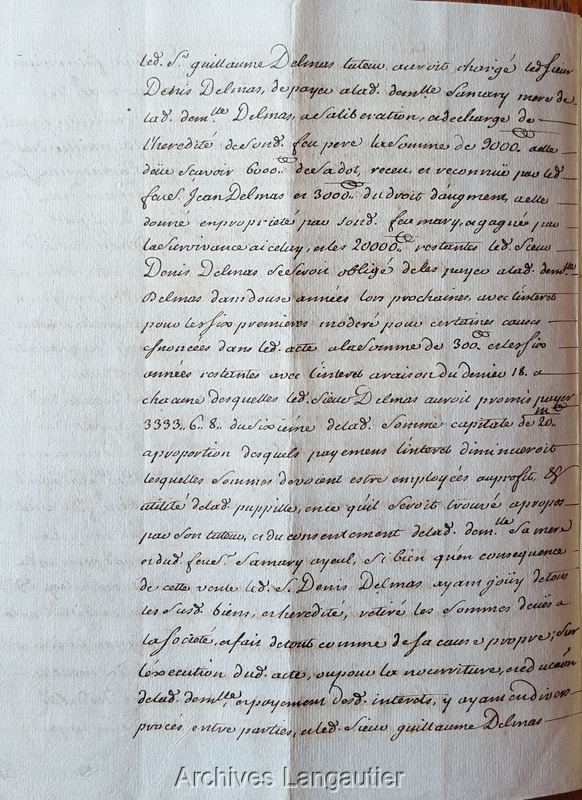 led. Sr. guillaume Delmas tuteur auroit chargé led. sieur
Denis Delmas, de payer a lad. demlle. Samary mere de
lad. demlle. Delmas, a sa liberation, a decharge de
l'heredité de sond. feu pere la somme de 9000. a elle
düe scavoir 6000. de sa dot, receu et reconnüe par led.
feu sr. Jean Delmas et 3000. du droit d'augment, a elle
donné en proprieté par sond. feu mary, et gagné par
la survivance a iceluy, et les 20000. restantes led. sieur
Denis Delmas se seroit obligé de les payer a lad. demlle.
Delmas dans douse années lors prochaines, avec l'interet
pour les six premieres moderé pour certaines causes
enoncées dans led. acte a la somme de 300. et les six
années restantes avec l'interet a raison du denier 18. a
chacune desquelles led. sieur Delmas auroit promis payer
3333. 6. 8. du sixieme de lad. somme capitale de 20.m
a proportion desquels payemens l'interet diminueroit
lesquelles sommes devoient estre employées au profit, &
utilité de lad. puppille, en ce qu'il seroit trouvé a propos
par son tuteur, et du consentement de lad. demlle. sa mere
et dud. feu sr. Samary ayeul, si bien qu'en consequence
de cette vente led. S. Denis Delmas ayant joüy de tous
les susd. biens, et heredité, retiré les sommes deües a
la societé, et fait de tout comme de sa cause propre; sur
l'execution dud. acte, ou pour la nourriture, et education
de lad. demlle., et payement desd. interets, y ayant eu divers
procés, entre parties, et led. sieur guillaume Delmas
Archives Langautier